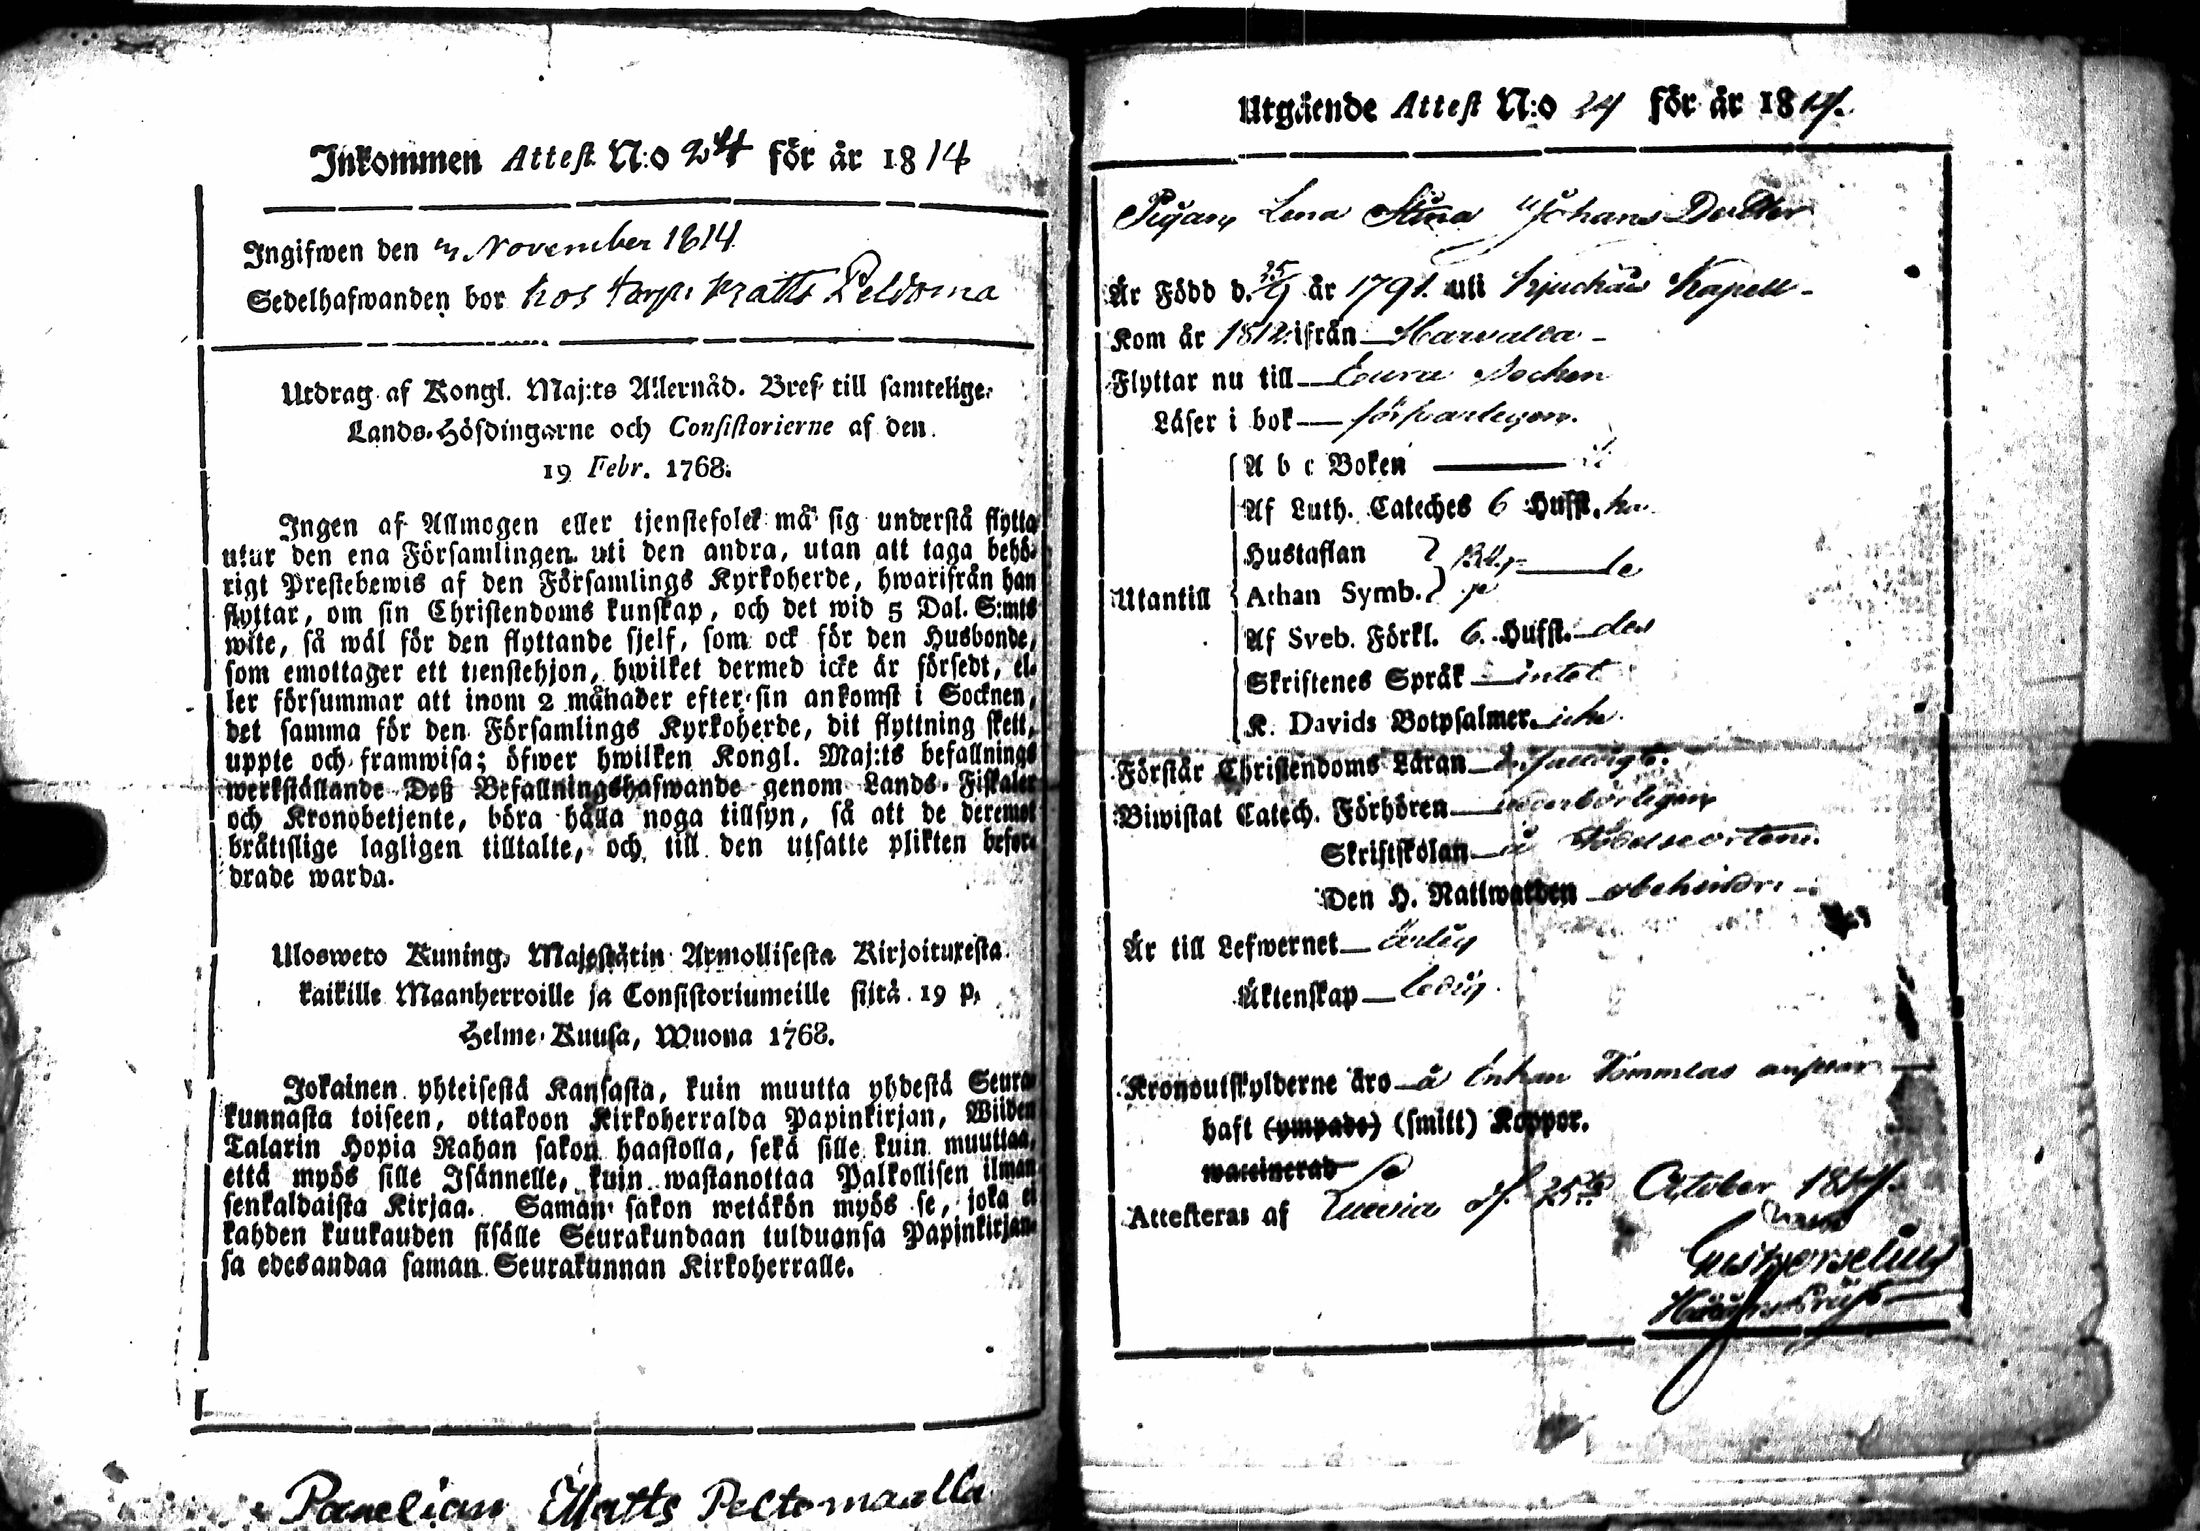 Inkommen Attest N:o 24 för år 1814
Ingifwen den November 1814
Sedelhafwanden bor hos torp. Matts Peldoma
Utdrag af Kongl. Maj:ts Allernåd. Bref till samtelige
Lands-Höfdingarne och Consistorierne af den
19 Febr. 1768.
Ingen af Allmogen eller tjenstefolck må sig understå flytta
utur den ena Församlingen uti den andra, utan att taga behö-
rigt Prestebewis af den Församlings Kyrkoherde, hwarifrån han
flyttar, om sin Christendoms kunskap, och det wid 5 Dal. S:mts
wite, så wäl för den flyttande sjelf, som ock för den Husbonde,
som emottager ett tjenstehjon, hwilket dermed icke är försedt, el-
ler försummar att inom 2 månader efter sin ankomst i Socknen,
det samma för den Församlings Kyrkoherde, dit flyttning skett,
uppte och framwisa; öfwer hwilken Kongl. Maj:ts befallnings
werkställande Deß Befallningshafwande genom Lands-Fiskaler
och Kronobetjente, böra hålla noga tillsyn, så att de deremot
bråttslige lagligen tilltalte, och till den utsatte plikten befor-
drade warda.
Ulosweto Kuning. Majestätin Armollisesta Kirjoituxesta
kaikille Maanherroille ja Consistoriumeille siitä 19 p.
Helme-Kuusa, Wuona 1768.
Jokainen yhteisestä Kansasta, kuin muutta yhdestä Seura-
kunnasta toiseen, ottakoon Kirkoherralda Papinkirjan, Wiiden
Talarin Hopia Rahan sakon haastolla, sekä sille kuin muuttaa,
että myös sille Isännelle, kuin wastanottaa Palkollisen ilman
senkaldaista Kirjaa. Saman sakon wetäkön myös se, joka ei
kahden kuukauden sisälle Seurakundaan tulduansa Papinkirjan-
sa edesandaa saman Seurakunnan Kirkoherralle.
Panelian Matts Peltomaalla
Utgående Attest N:o 24 för år 1814.
Pigan Lena Stina Johans Dotter
Är Född d. 25/9 år 1791. uti Kjuckais Kapell
Kom år 1812 ifrån Harvalda
Flyttar nu till Eura Sochen
Läser i bok försvarligen.
A b c Boken
Af Luth. Cateches 6 Hufst.
Hustaflan
Utantill Athan Symb.
Af Sveb. Förkl. 6. Hufst. des
Skriftenes Språk intet
K. Davids Botpsalmer icke
Förstår Christendoms Läran enfaldigt.
Biwistat Catech. Förhören wederbörligen
Skriftskolan å Födelseorten.
Den H. Nattwarden obehindr.
Är till Lefwernet ärlig
Äktenskap ledig
Kronoutskylderne äro å
haft (ympade) (smitt) Koppor.
waccinerad
Attesteras af Luvia d. 25 October 1814.